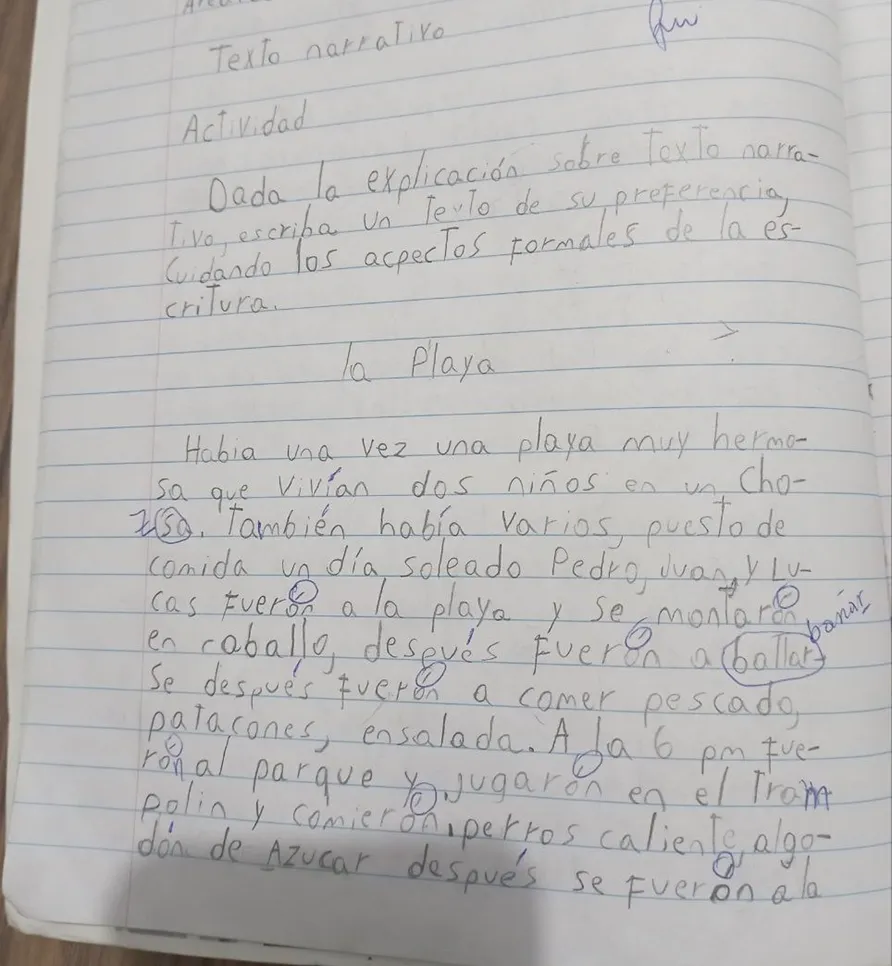 Texto narrativo
Actividad
Dada la explicación sobre Texto narra-
Tivo, escriba un Texto de su preferencia,
Cuidando los acpectos formales de la es-
critura.
la Playa
Habia una vez una playa muy hermo-
sa que Vivían dos niños en un Cho-
sa. También había Varios, puesto de
comida un día soleado Pedro, Juan, y Lu-
cas Fuerón a la playa y se montarón
bañar
en caballo, después Fuerón a ballar
Se después Fuerón a comer pescado,
patacones, ensalada. A la 6 pm Fue-
rón al parque y jugarón en el Tram
polin y comierón, perros caliente, algo-
dón de Azucar después se Fuerón a la